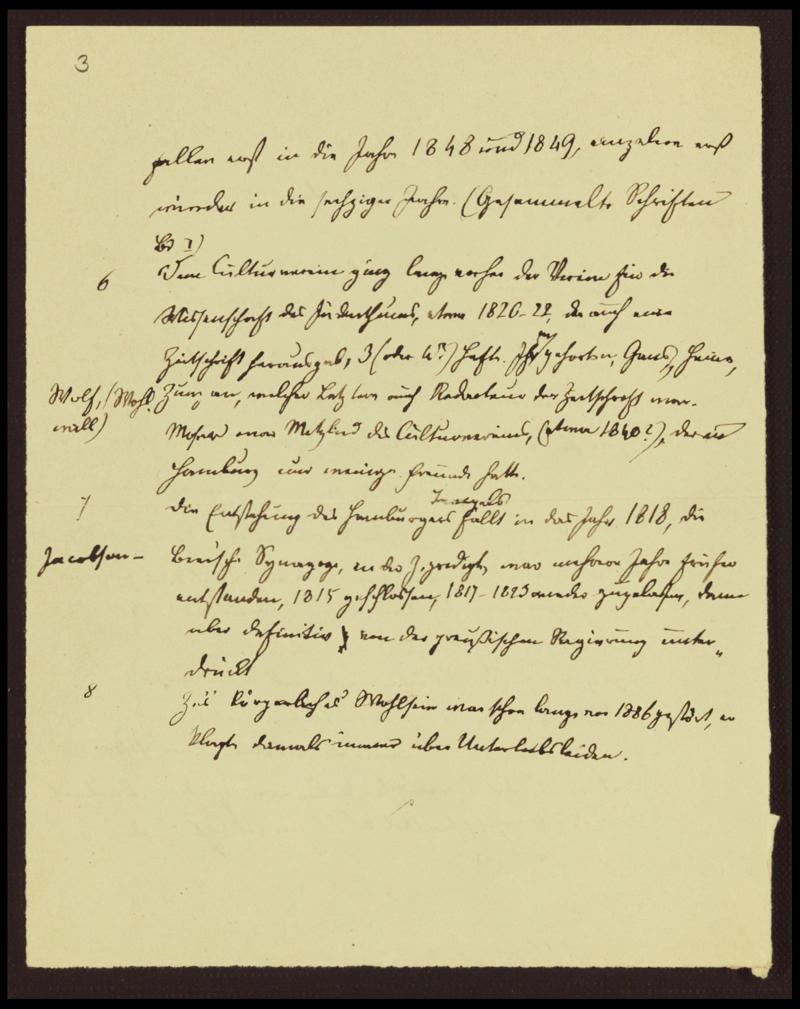 3
fallen erst in die Jahre 1848 und 1849, einzelne erst
wieder in die sechziger Jahre. (Gesammelte Schriften
Bd I)
6 Dem Culturverein ging lange vorher der Verein für die
Wissenschaft des Judenthums, etwa 1820-22, der auch eine
Zeitschrift herausgab, 3 (oder 4?) Hefte. Ihm gehörten, Gans, Heine,
Wolf, (Wohl Zunz an, welcher Letztere auch Redacteur der Zeitschrift war.
will) Moser war Mitglied des Culturvereins, (etwa 1840?), der in
Hamburg nur wenige Freunde hatte.
7 Die Entstehung des Hamburger Tempels fällt in das Jahr 1818, die
Jacobson- Beer'sche Synagoge, in der Z. predigte, war mehrere Jahre früher
entstanden, 1815 geschlossen, 1817-1823 wieder zugelassen, dann
aber definitiv von der preußischen Regierung unter
drückt
8 Z's körperliches Wohlsein war schon lange vor 1886 gestört, er
klagte damals immer über Unterleibsleiden.